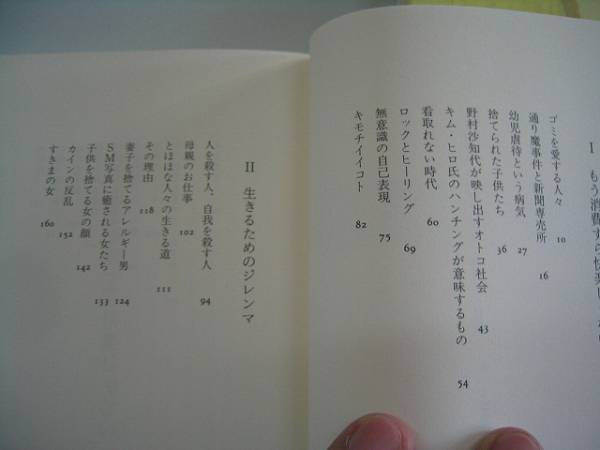 I もう消費すら快楽じゃない
ゴミを愛する人々 10
通り魔事件と新聞専売所 16
幼児虐待という病気 27
捨てられた子供たち 36
野村沙知代が映し出すオトコ社会 43
キム・ヒロ氏のハンチングが意味するもの 54
看取れない時代 60
ロックとヒーリング 69
無意識の自己表現 75
キモチイイコト 82
II 生きるためのジレンマ
人を殺す人、自我を殺す人 94
母親のお仕事 102
とほほな人々の生きる道 111
その理由 118
妻子を捨てるアレルギー男 124
SM写真に癒される女たち 133
子供を捨てる女の顔 142
カインの反乱 152
すきまの女 160